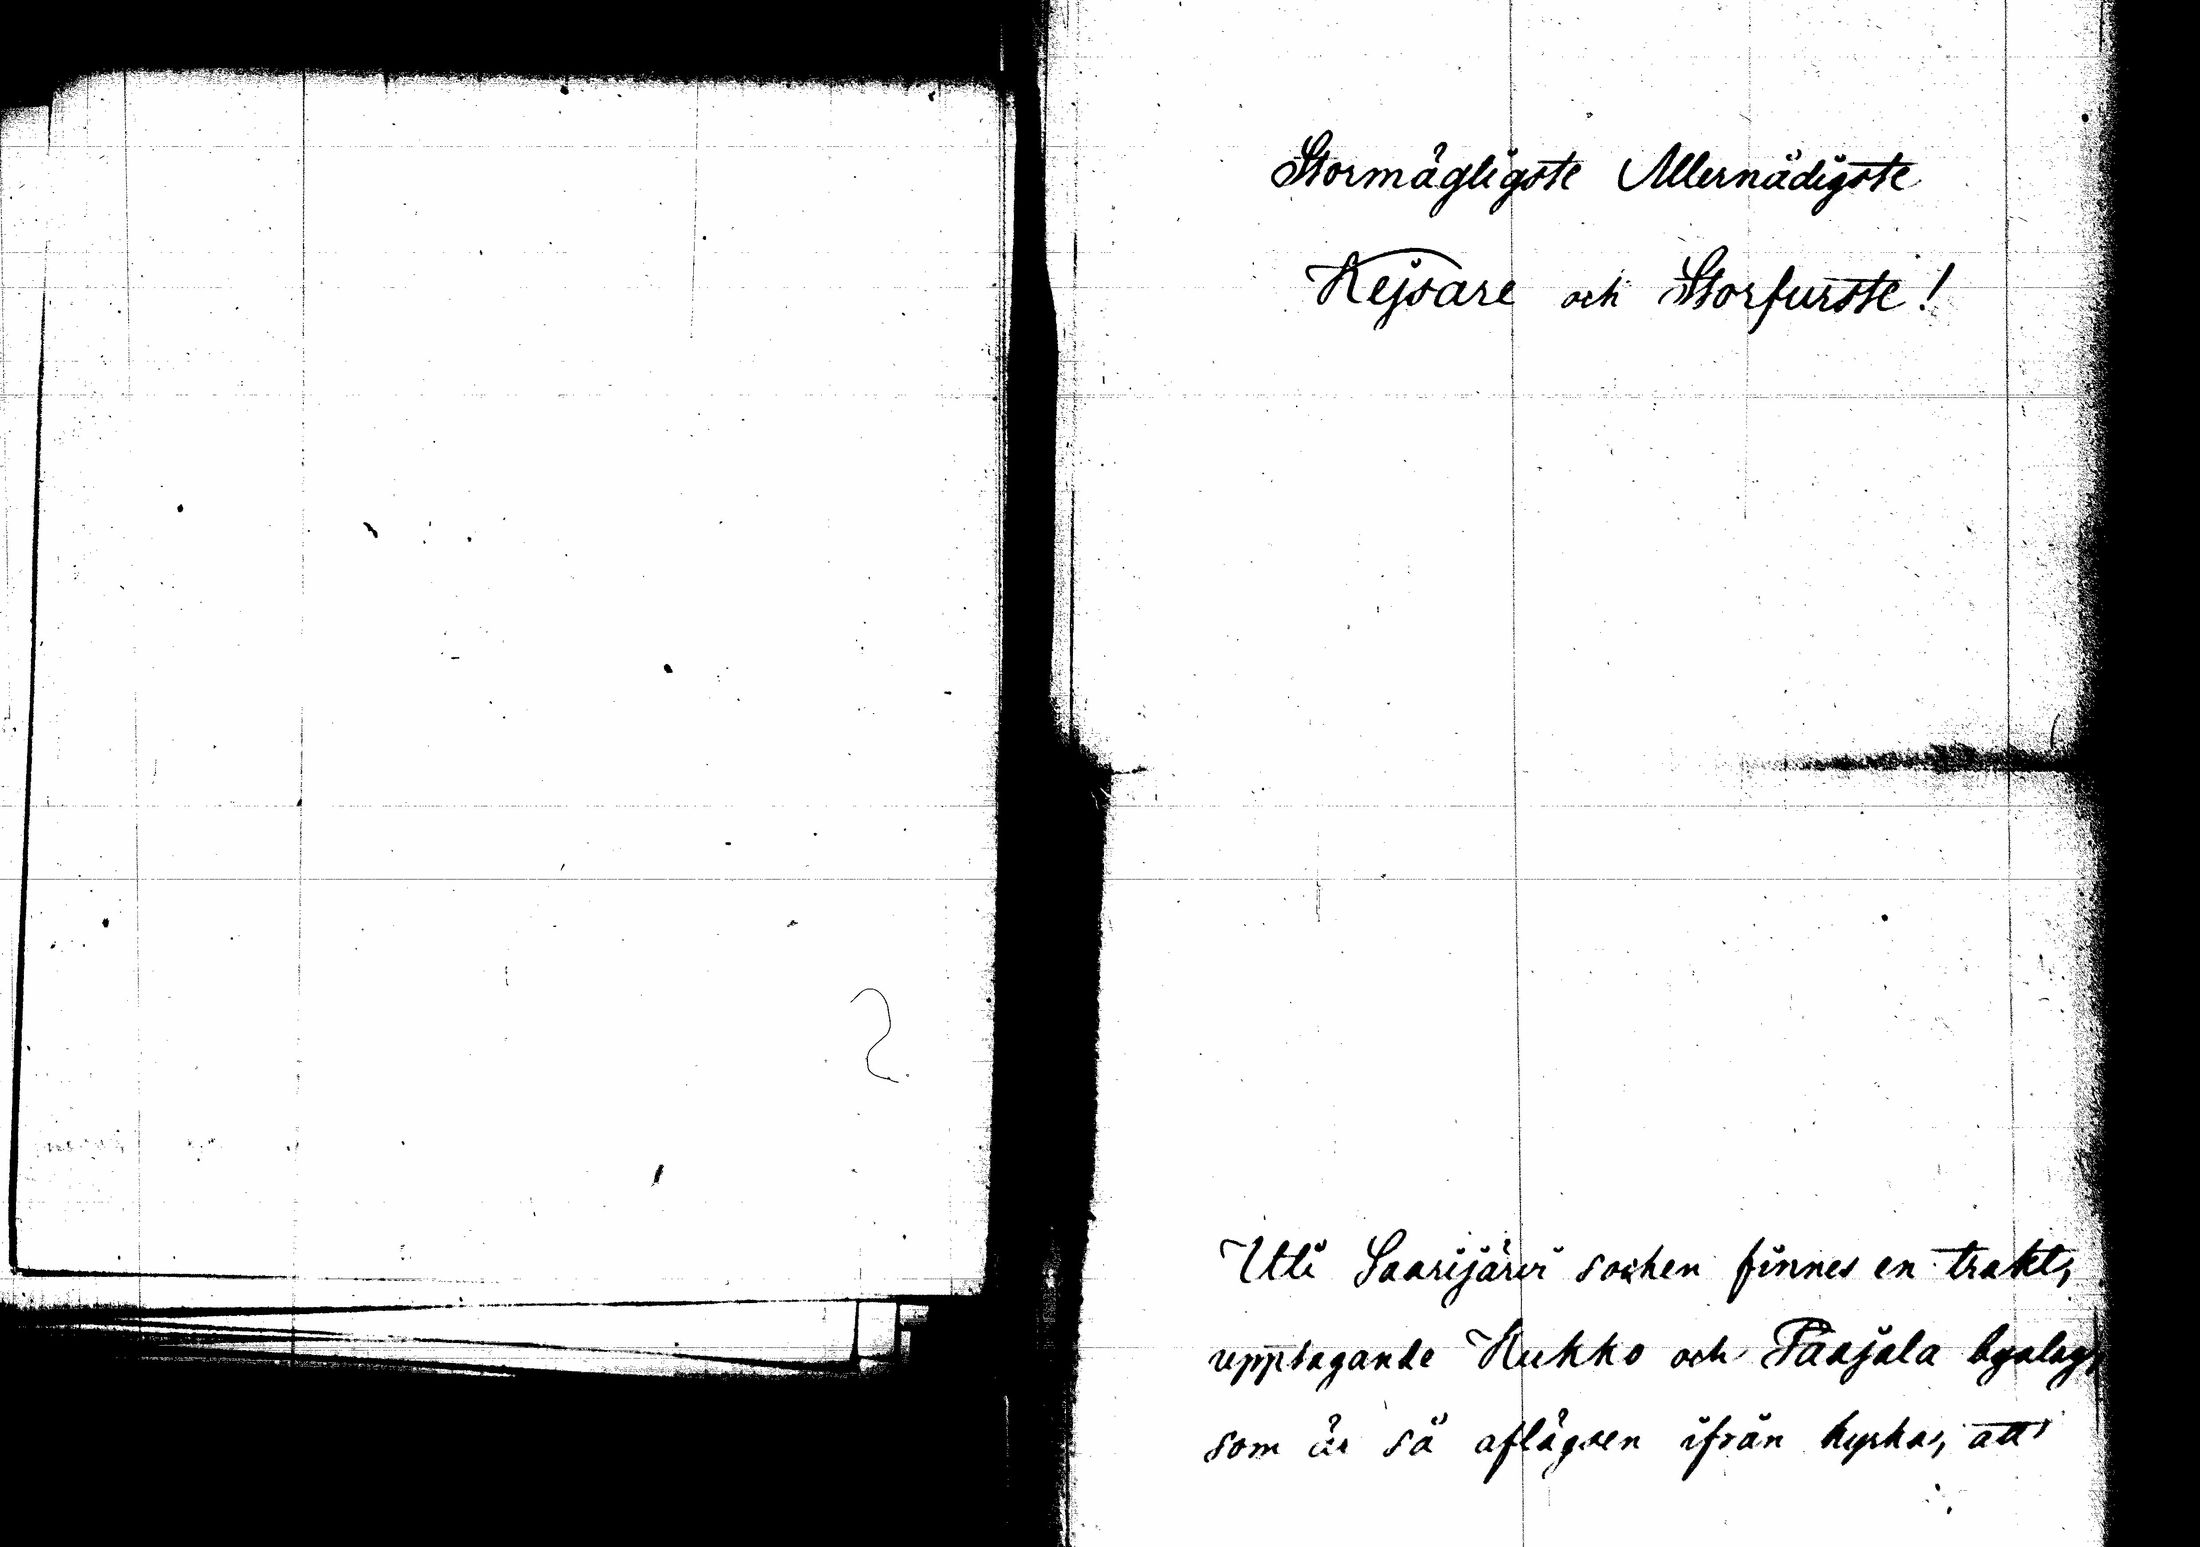 Stormägtigste Allernådigste
Kejsare och Storfurste!
Uti Saarijärvi socken finnes en trakt,
upptagande Kukko och Paajala byalag,
som är så aflägsen ifrån kyrka, att